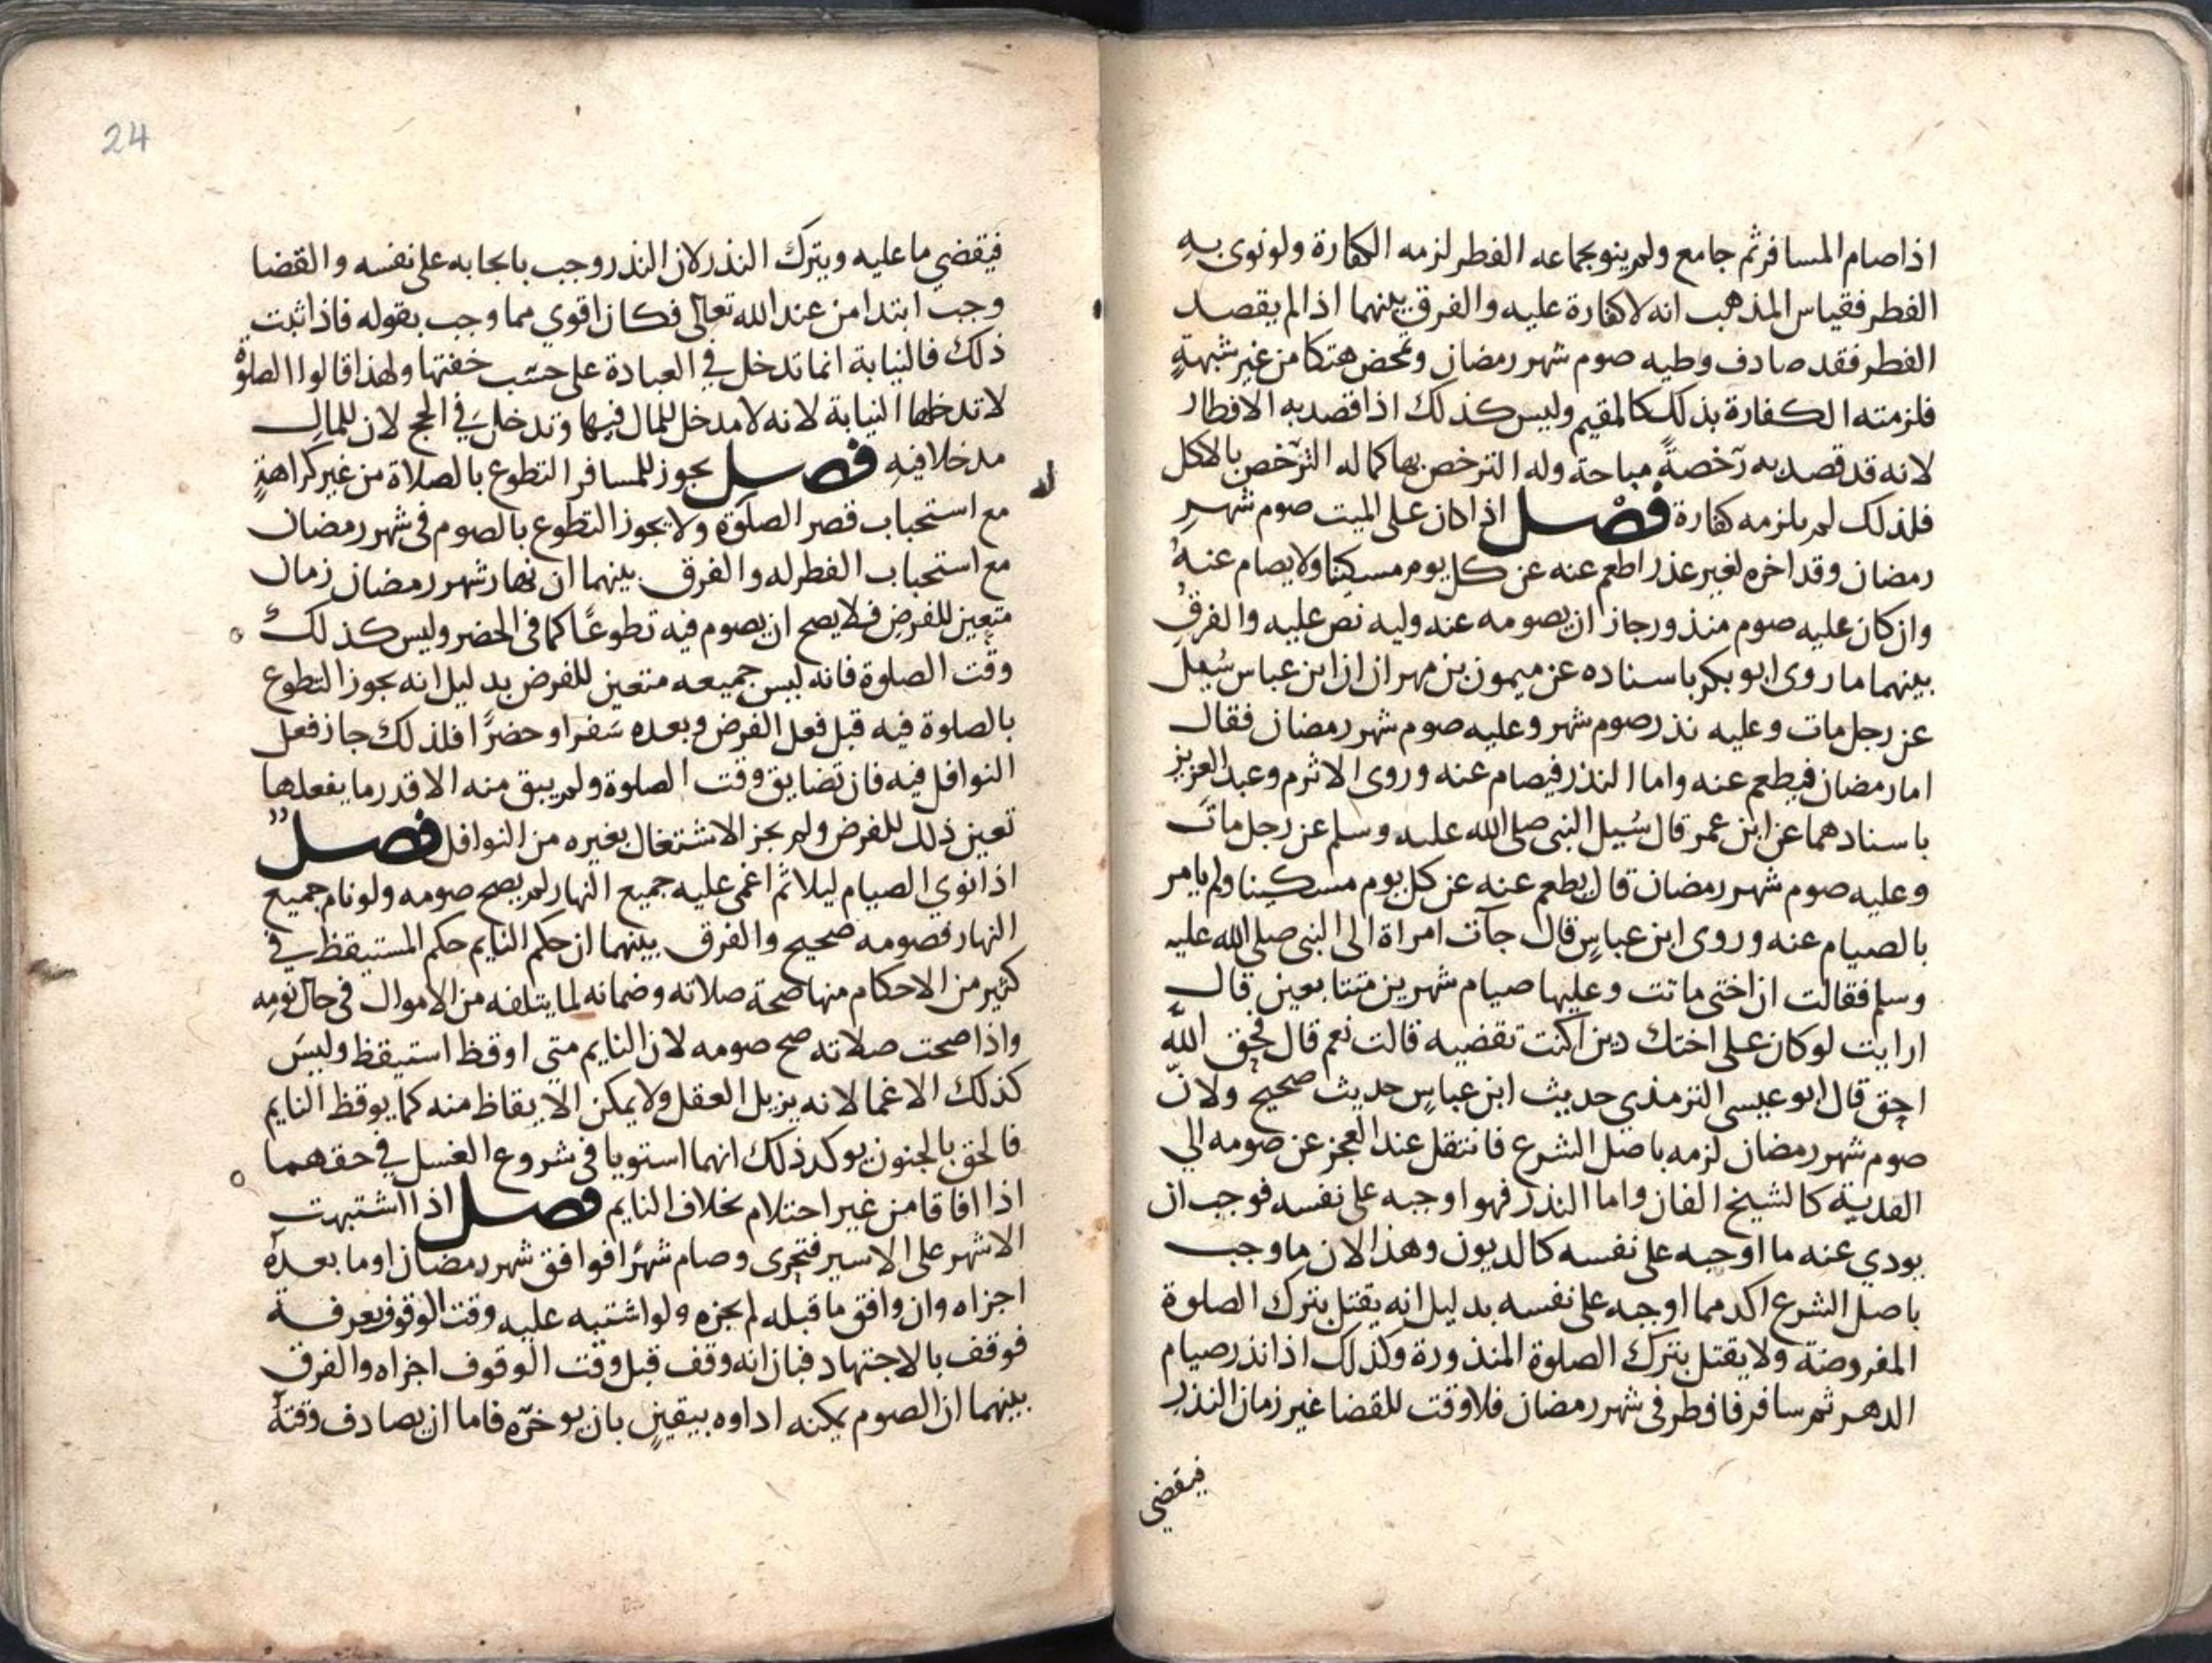 اذا صام المسافر ثم جامع ولم ينو بجماعه الفطر لزمه الكفارة ولو نوى به
الفطر فقياس المذهب انه لا كفارة عليه والفرق بينهما اذا لم يقصد
الفطر فقد صادف وطيه صوم شهر رمضان وتمحض هتكا من غير شبهةٍ
فلزمته الكفارة بذلك كالمقيم وليس كذلك اذا قصد به الافطار
لانه قد قصد به رخصةً مباحة وله الترخص بها كما له الترخص بالاكل
فلذلك لم يلزمه كفارة فصل اذا كان على الميت صوم شهرِ
رمضان وقد اخره لغير عذر اطعم عنه عن كل يوم مسكينا ولا يصام عنهُ
وان كان عليه صوم منذور جاز ان يصومه عنه وليه نص عليه والفرق
بينهما ما روى ابو بكر باسناده عن ميمون بن مهران ان ابن عباس سُيل
عن رجل مات وعليه نذر صوم شهر وعليه صوم شهر رمضان فقال
اما رمضان فيطعم عنه واما النذر فيصام عنه وروى الاثرم وعبد العزيز
باسنادهما عن ابن عمر قال سُيل النبي صلى الله عليه وسلم عن رجل مات
وعليه صوم شهر رمضان قال يطعم عنه عن كل يوم مسكينا ولم يامر
بالصيام عنه وروى ابن عباسٍ قال جآت امراة الى النبي صلى الله عليه
وسلم فقالت ان اختي ماتت وعليها صيام شهرين متتابعين قال
ارايت لو كان على اختك دين اكنت تقضيه قالت نعم قال فحق الله
احق قال ابو عيسى الترمذي حديث ابن عباسٍ حديث صحيح ولان
صوم شهر رمضان لزمه باصل الشرع فانتقل عند العجز عن صومه الي
الفدية كالشيخ الفان واما النذر فهو اوجبه على نفسه فوجب ان
يودي عنه ما اوجبه على نفسه كالديون وهذا لان ما وجب
باصل الشرع اكد مما اوجبه على نفسه بدليل انه يقتل بترك الصلوة
المفروضة ولا يقتل بترك الصلوة المنذورة وكذلك اذا نذر صيام
الدهر ثم سافر فافطر في شهر رمضان فلا وقت للقضا غير زمان النذر
فيقضي
24
فيقضي ما عليه ويترك النذر لان النذر وجب بايجابه على نفسه والقضا
وجب ابتدا من عند الله تعالى فكان اقوي مما وجب بقوله فاذا ثبت
ذلك فالنيابة انما تدخل في العبادة على حسب خفتها ولهذا قالوا الصلوة
لا تدخلها النيابة لانه لا مدخل للمال فيها وتدخل في الحج لان للمال
مدخلا فيه فصل يجوز للمسافر التطوع بالصلاة من غير كراهةٍ
مع استحباب قصر الصلوة ولا يجوز التطوع بالصوم في شهر رمضان
مع استحباب الفطر له والفرق بينهما ان نهار شهر رمضان زمان
متعين للفرض فلا يصح ان يصوم فيه تطوعًا كما في الحضر وليس كذلك
وقت الصلوة فانه ليس جميعه متعين للفرض بدليل انه يجوز التطوع
بالصلوة فيه قبل فعل الفرض وبعده سَفرا وحضرًا فلذلك جاز فعل
النوافل فيه فان تضايق وقت الصلوة ولم يبق منه الا قدر ما يفعلها
تعين ذلك للفرض ولم يجز الاشتغال بغيره من النوافل فصل
اذا نوي الصيام ليلا ثم اغمى عليه جميع النهار لم يصح صومه ولو نام جميع
النهار فصومه صحيح والفرق بينهما ان حكم النايم حكم المستيقظ في
كثير من الاحكام منها صحة صلاته وضمانه لما يتلفه من الاموال في حال نومه
واذا صحت صلاته صح صومه لان النايم متى اوقظ استيقظ وليس
كذلك الاغما لانه يزيل العقل ولا يمكن الايقاظ منه كما يوقظ النايم
فالحق بالجنون يوكد ذلك انهما استويا في شروع الغسل في حقهما
اذا افاقا من غير احتلام بخلاف النايم فصل اذا اشتبهت
الاشهر على الاسير فتحرى وصام شهرًا فوافق شهر رمضان او ما بعده
اجزاه وان وافق ما قبله لم يجزه ولو اشتبه عليه وقت الوقوف بعرفة
فوقف بالاجتهاد فبان انه وقف قبل وقت الوقوف اجزاه والفرق
بينهما ان الصوم يمكنه اداوه بيقينٍ بان يوخره فاما ان يصادف وقتهُ